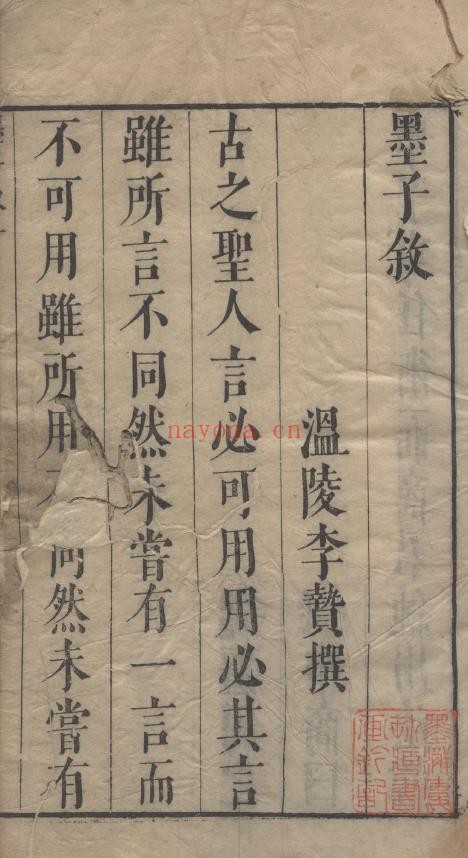 墨子敘
溫陵李贄撰
古之聖人言必可用用必其言
雖所言不同然未嘗有一言而
不可用雖所用同然未嘗有
nayona.cn